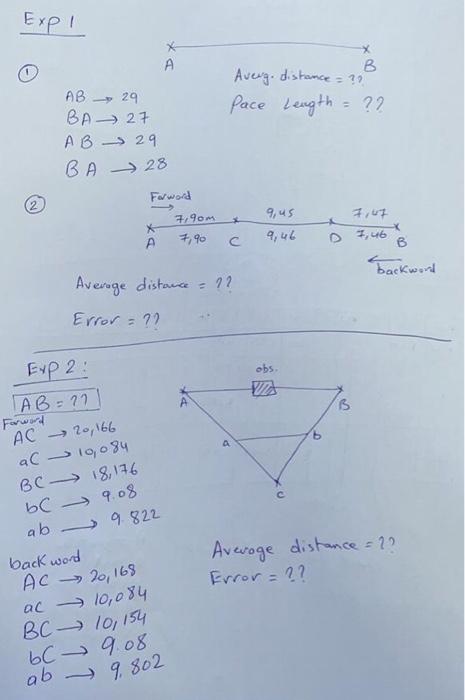 Exp 1
A B
① Averg. distance = ??
AB → 29 Pace Length = ??
BA → 27
AB → 29
BA → 28
② Forword
7,90m 9,45 7,47
A 7,90 C 9,46 D 7,46 B
backword
Average distance = ??
Error = ??
Exp 2:
obs.
AB = ??
A B
Forword
AC → 20,166
aC → 10,084
a b
BC → 18,176
bC → 9.08
C
ab → 9.822
back word
Average distance = ??
AC → 20,168
Error = ??
ac → 10,084
BC → 10,154
bC → 9.08
ab → 9,802